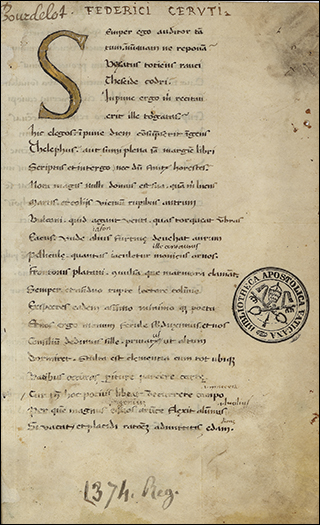 Bourdelot. FEDERICI CERVTI
Semper ego auditor tā
tum, nūquam ne reponā
Vexatus toties rauci
Theseide codri.
Inpune ergo m̄ recitau
erit ille togatas
hic elegos. inpune diem consūpserit īgens
Thelephus. aut sūmi plena iā margine libri
Scriptus et intergo nec dū finitꝰ horestes.
Nota magis nulli domus est sua. quā m̄ lucus
Martis. et eoliis uicinū rupibus antrum
Vulcani. quid agant uenti. quas torqueat ūbras
iason
Eacus. unde alius furtiuę deuehat aurum
Pelliculę. quantas iaculetur monicus ornos.
Frontonis platani. conuulsaque marmora clamant
Semper et assiduo ruptę lectore colūnę
Exspectes eadem a sūmo minimoque poeta
Et nos ergo manum ferulę subduximus. et nos
Consiliū dedimus sillę. priuatus ut altum
Dormiret. stulta est clementia cum tot ubique
Vatibus occurras periturę parcere cartę
Cur tam̄ hoc potius libeat decurrere campo
Per quem magnus equos auruncę flexit alumnus
Si uacat. et placidi rationē admittitis edam.
BIBLIOTHECA APOSTOLICA VATICANA
1374. Reg.